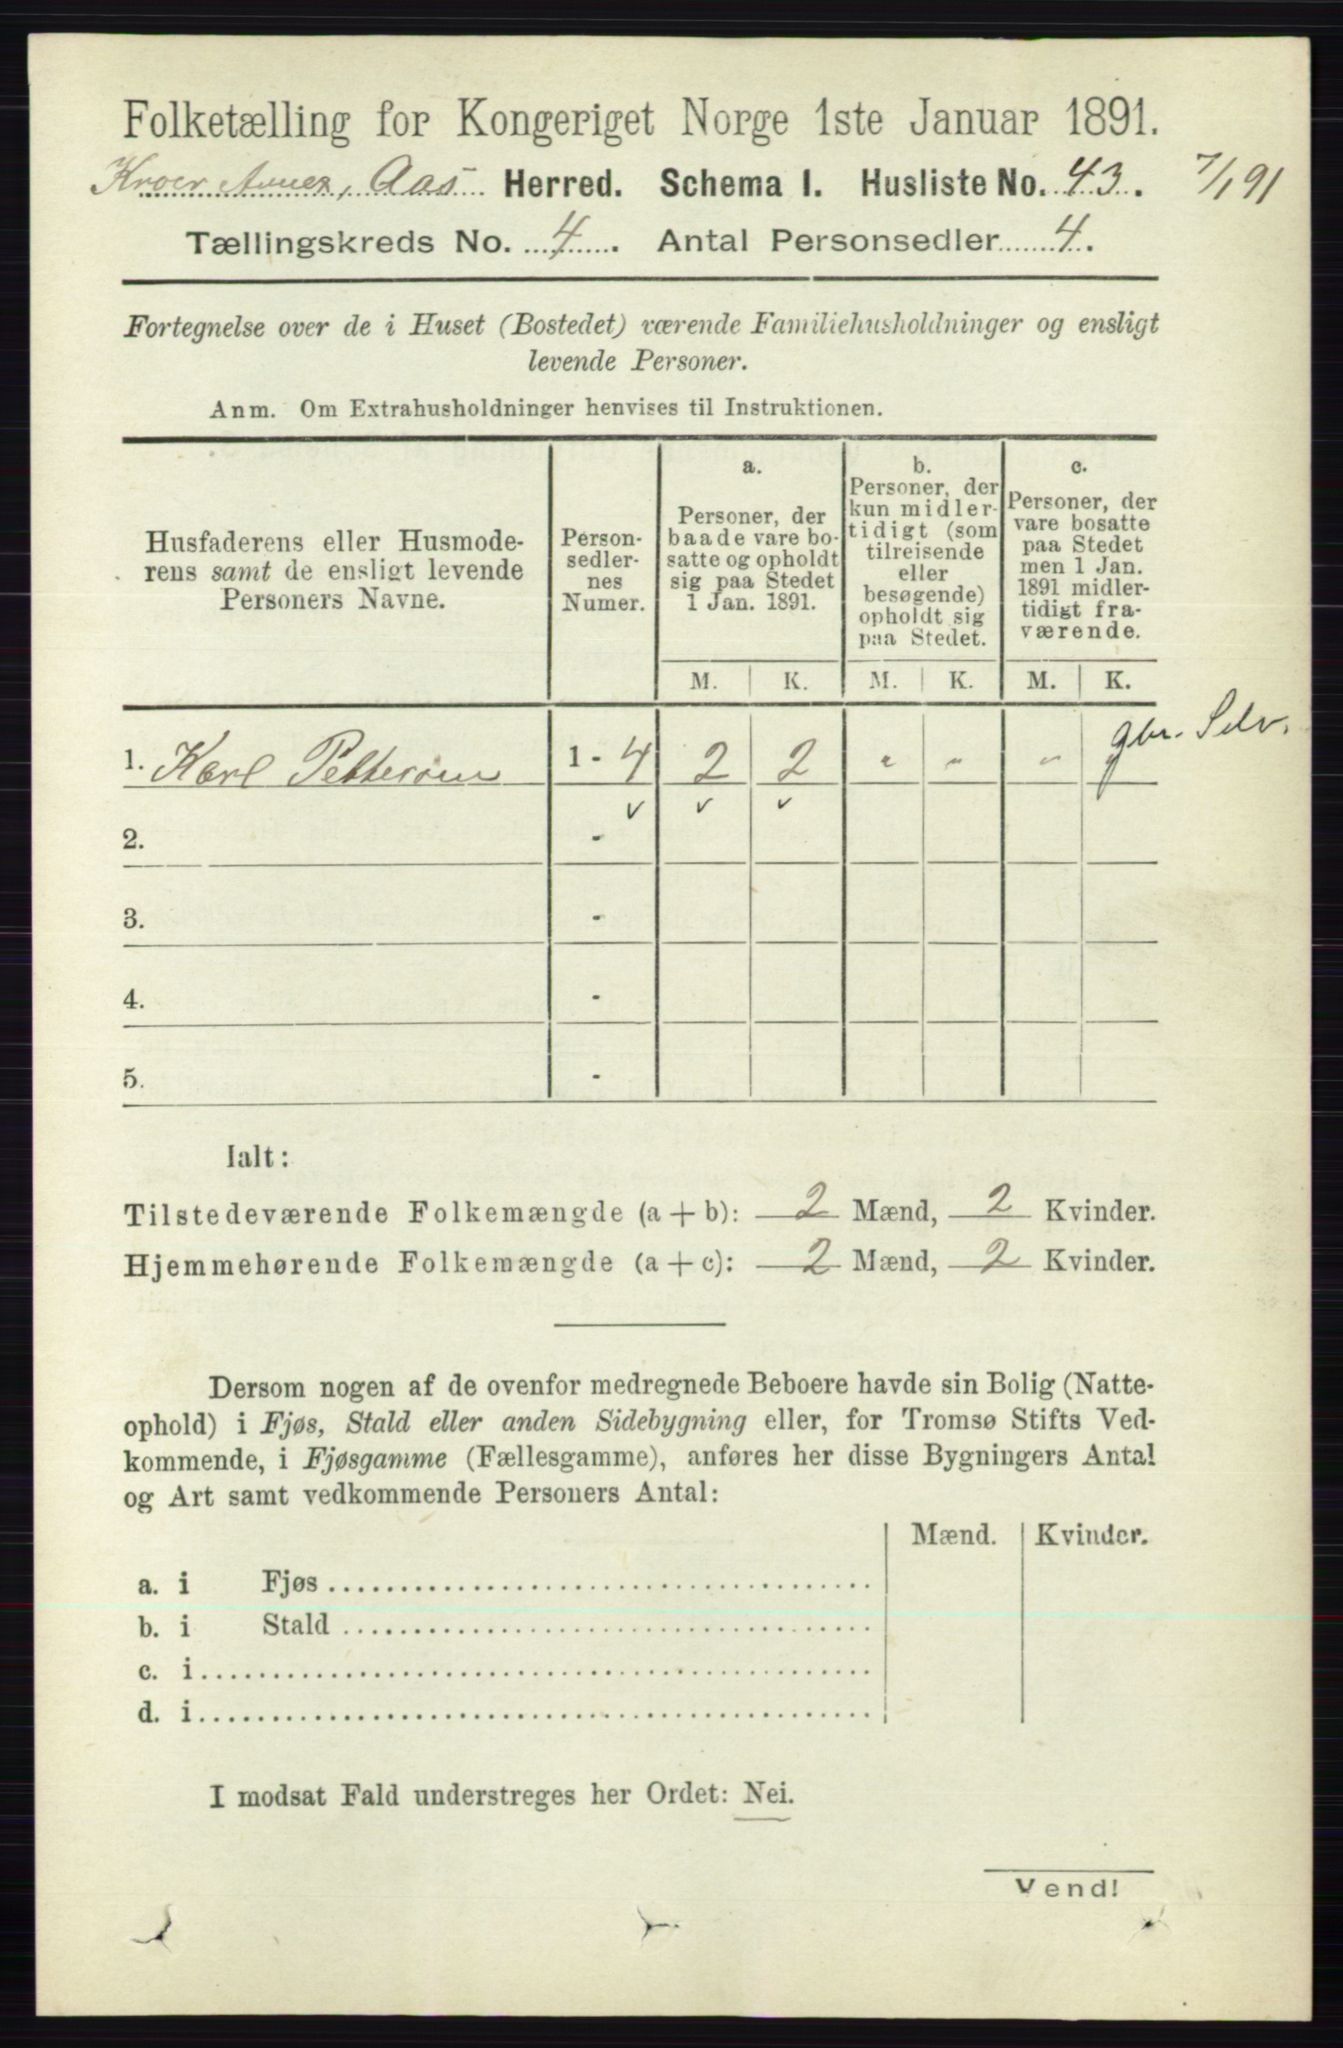 Folketælling for Kongeriget Norge 1ste Januar 1891.
Kroer Annex, Aas Herred. Schema I. Husliste No. 43. 7/1 91
Tællingskreds No. 4. Antal Personsedler 4.
Fortegnelse over de i Huset (Bostedet) værende Familiehusholdninger og ensligt
levende Personer.
Anm. Om Extrahusholdninger henvises til Instruktionen.
Husfaderens eller Husmode-
rens samt de ensligt levende
Personers Navne.
Person-
sedler-
nes
Numer.
a.
Personer, der
baade vare bo-
satte og opholdt
sig paa Stedet
1 Jan. 1891.
b.
Personer, der
kun midler-
tidigt (som
tilreisende
eller
besøgende)
opholdt sig
paa Stedet.
c.
Personer, der
vare bosatte
paa Stedet
men 1 Jan.
1891 midler-
tidigt fra-
værende.
M. K. M. K. M. K.
gbr. Selv.
1. Karl Petterson 1 - 4 2 2 " " " "
v v v
2. -
3. -
4. -
5. -
Ialt:
Tilstedeværende Folkemængde (a + b): 2 Mænd, 2 Kvinder.
Hjemmehørende Folkemængde (a + c): 2 Mænd, 2 Kvinder.
Dersom nogen af de ovenfor medregnede Beboere havde sin Bolig (Natte-
ophold) i Fjøs, Stald eller anden Sidebygning eller, for Tromsø Stifts Ved-
kommende, i Fjøsgamme (Fællesgamme), anføres her disse Bygningers Antal
og Art samt vedkommende Personers Antal:
Mænd. Kvinder.
a. i Fjøs
b. i Stald
c. i
d. i
I modsat Fald understreges her Ordet: Nei.
Vend!